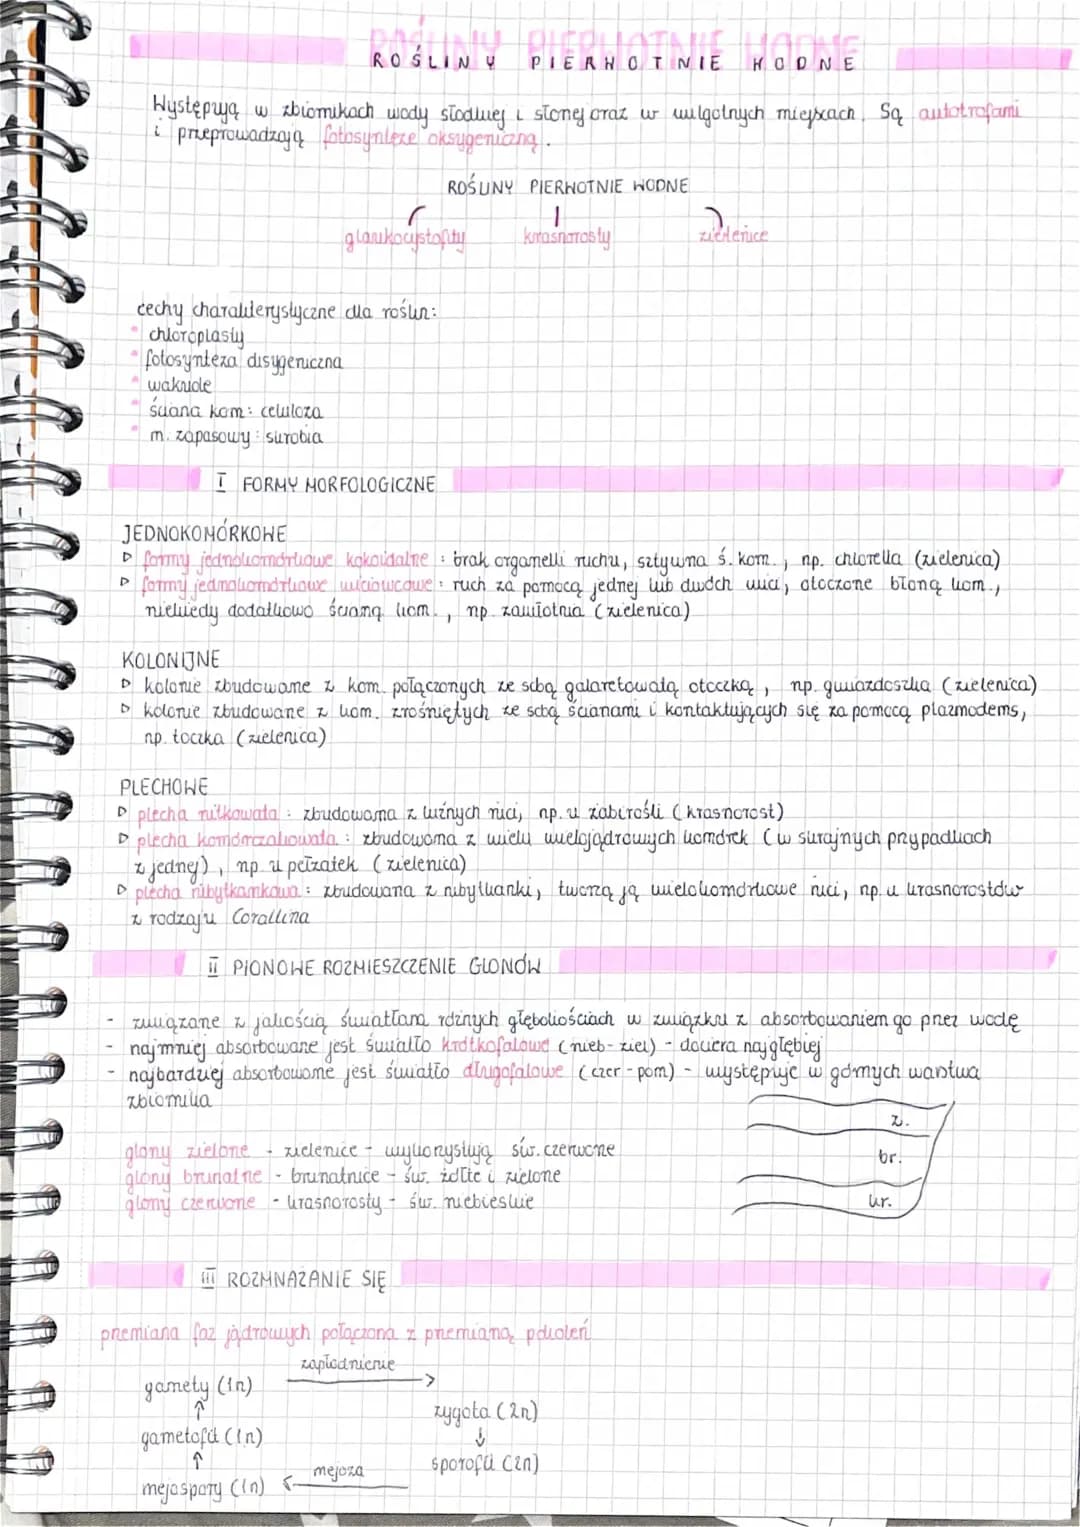 ROŚLINY PIERWOTNIE WODNE
Występują w zbiornikach wody słodkiej i słonej oraz w wilgotnych miejscach. Są autotrofami
i przeprowadzają fotosyntezę oksygeniczną.
ROŚLINY PIERWOTNIE WODNE
glaukocystofity krasnorosty zielenice
cechy charakterystyczne dla roślin:
chloroplasty
fotosynteza oksygeniczna
wakuole
ściana kom: celuloza
m. zapasowy: skrobia
I FORMY MORFOLOGICZNE
JEDNOKOMÓRKOWE
▷ formy jednokomórkowe kokoidalne : brak organelli ruchu, sztywna ś. kom., np. chlorella (zielenica)
▷ formy jednokomórkowe wiciowcowe : ruch za pomocą jednej lub dwóch wici, otoczone błoną kom.,
niekiedy dodatkowo ścianą kom., np. zawłotnia (zielenica)
KOLONIJNE
▷ kolonie zbudowane z kom. połączonych ze sobą galaretowatą otoczką, np. gwiazdoszka (zielenica)
▷ kolonie zbudowane z kom. zrośniętych ze sobą ścianami i kontaktujących się za pomocą plazmodesm,
np. toczka (zielenica)
PLECHOWE
▷ plecha nitkowata : zbudowana z luźnych nici, np. u żabirośli (krasnorost)
▷ plecha komórczakowata : zbudowana z wielu wielojądrowych komórek (w skrajnych przypadkach
z jednej), np. u pełzatek (zielenica)
▷ plecha nibytkankowa : zbudowana z nibytkanki, tworzą ją wielokomórkowe nici, np. u krasnorostów
z rodzaju Corallina
II PIONOWE ROZMIESZCZENIE GLONÓW
- związane z jakością światła na różnych głębokościach w związku z absorbowaniem go przez wodę
- najmniej absorbowane jest światło krótkofalowe (nieb-ziel) - dociera najgłębiej
- najbardziej absorbowane jest światło długofalowe (czer-pom) - występuje w górnych warstwa
zbiornika
z.
br.
kr.
glony zielone - zielenice - wykorzystują św. czerwone
glony brunatne - brunatnice - św. żółte i zielone
glony czerwone - krasnorosty - św. niebieskie
III ROZMNAŻANIE SIĘ
przemiana faz jądrowych połączona z przemianą pokoleń
zapłodnienie
gamety (1n)
zygota (2n)
gametofit (1n)
sporofit (2n)
mejoza
mejospory (1n)